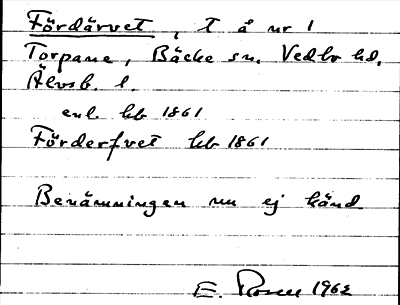 Fördärvet, t å nr 1
Torpane, Bäcke sn. Vedbo hd.
Älvsb. l.
enl. hb 1861
Förderfvet hb 1861
Benämningen nu ej känd
E. Rosen 1962